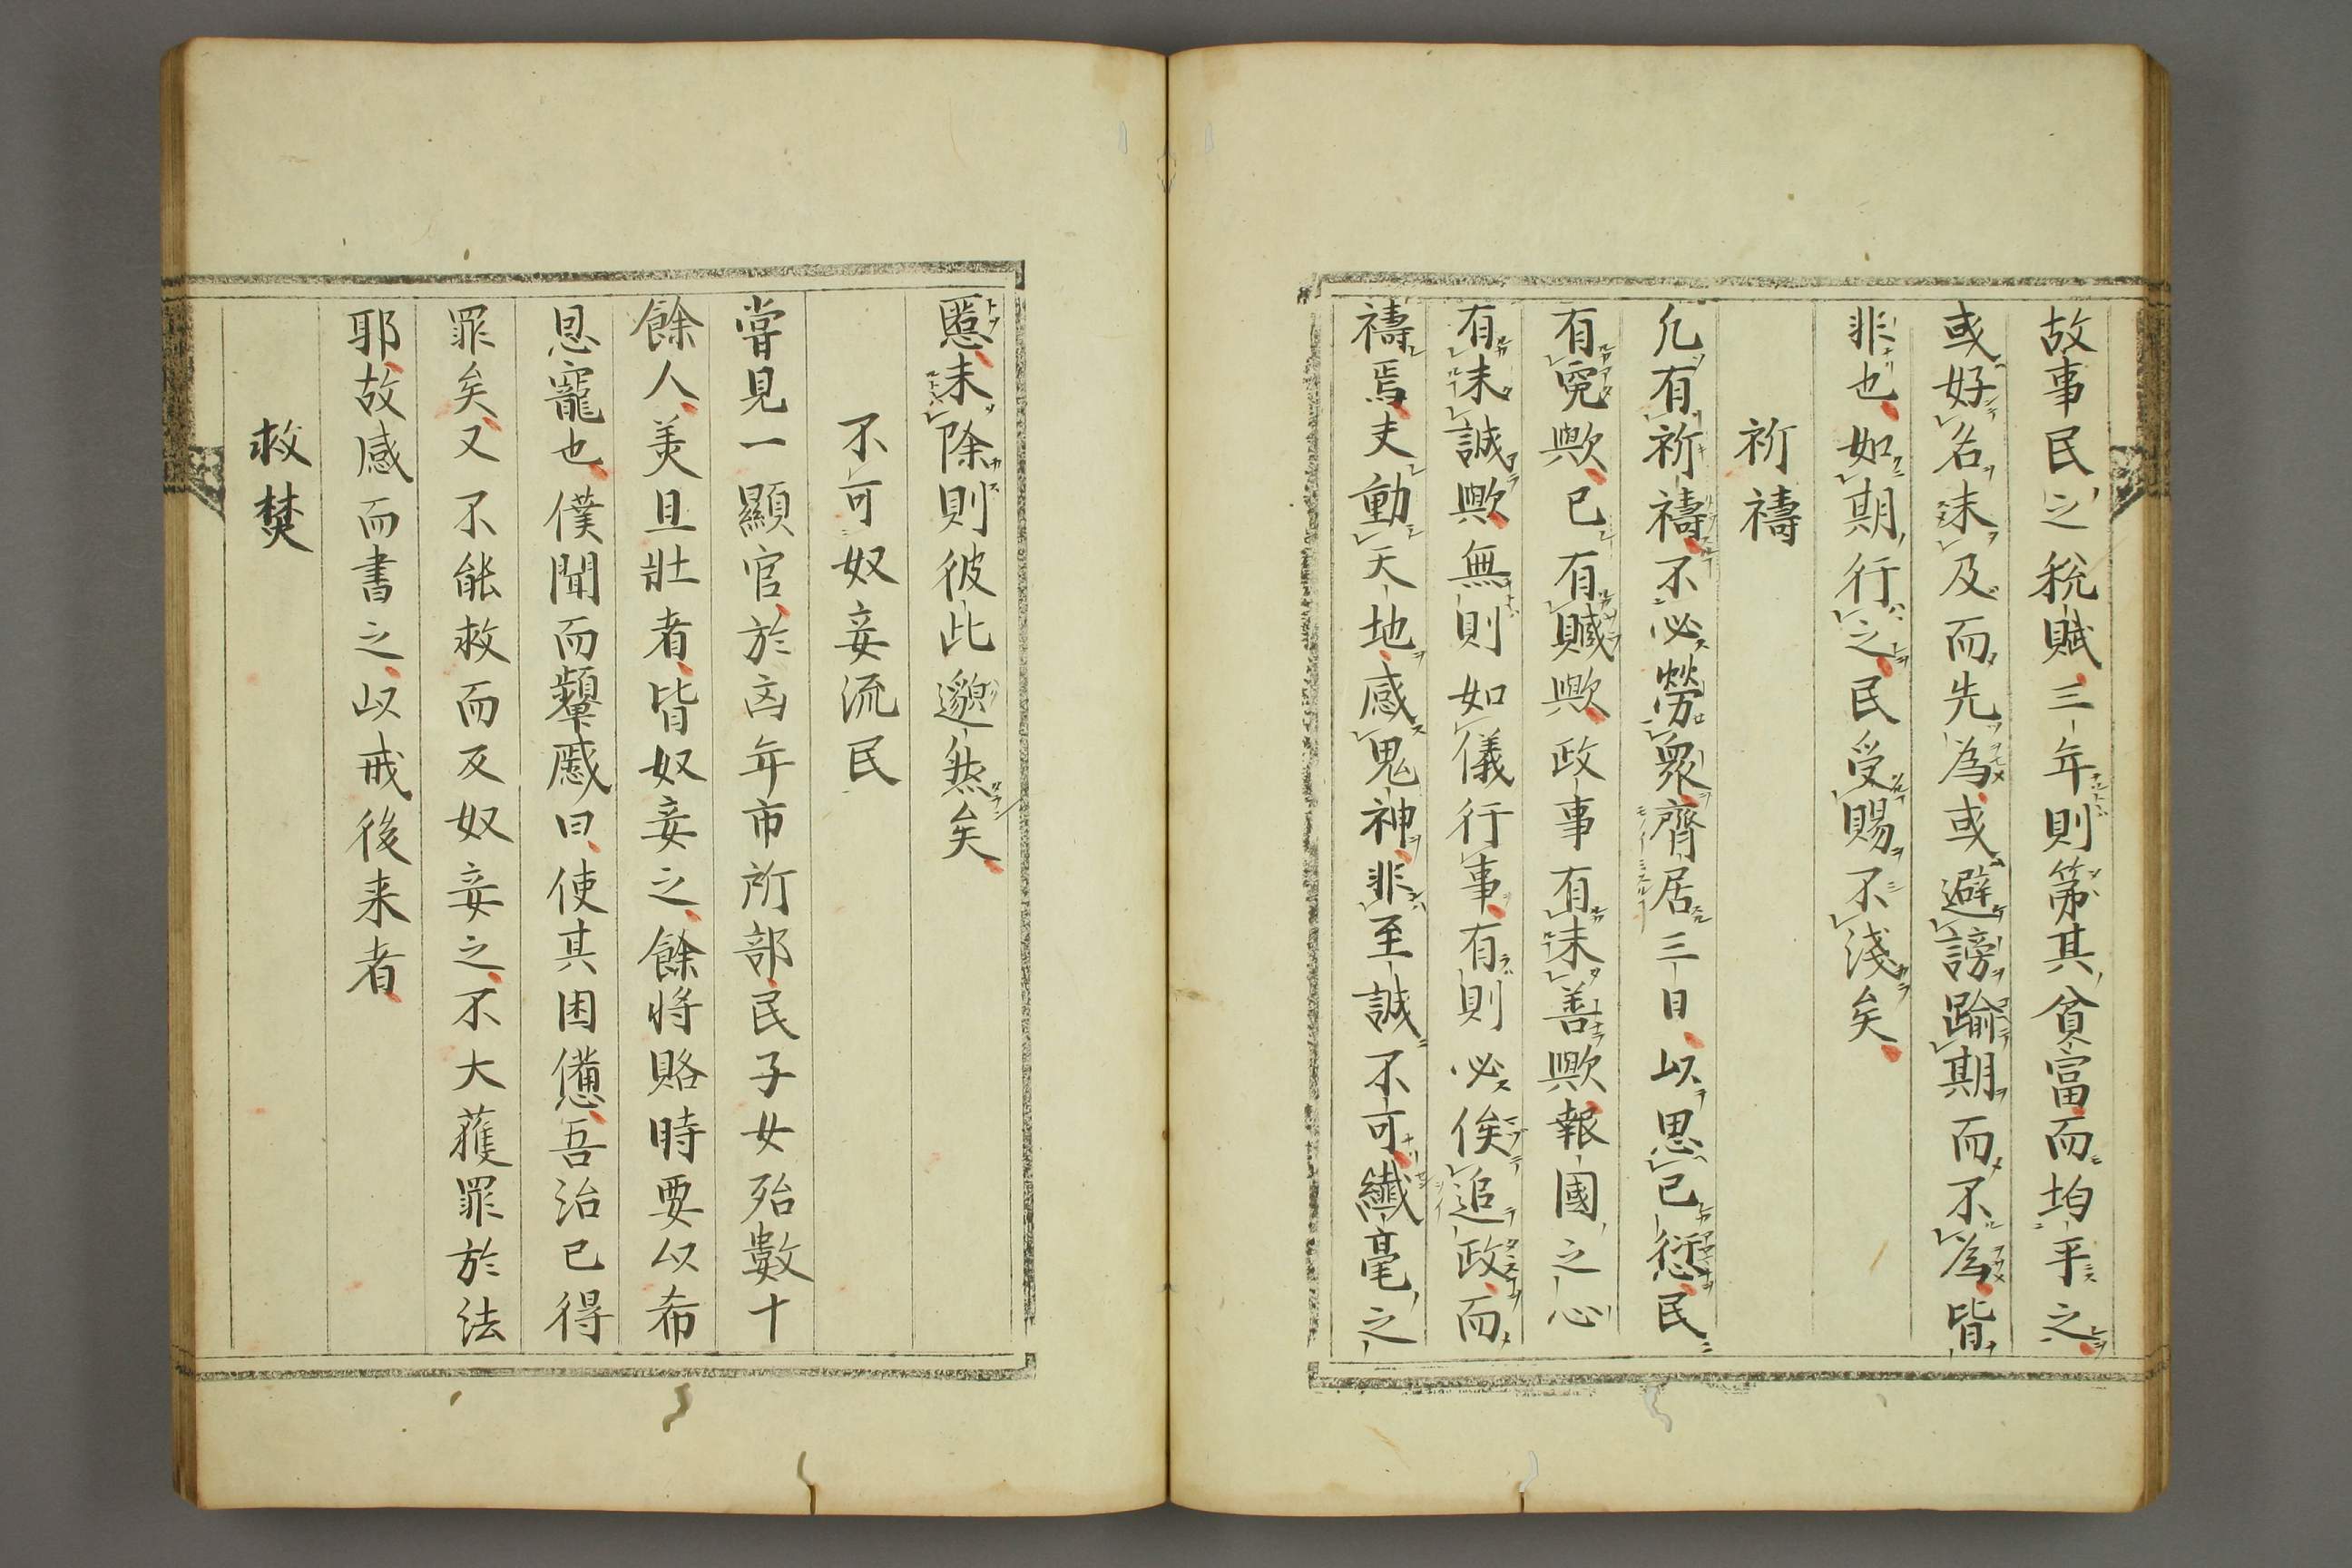 故事民之税賦三年則第其貧富而均平之
或好名未及而先為或避謗踰期而不為皆
非也如期行之民受賜不淺矣
祈禱
凡有祈禱不必勞衆齊居三日以思已愆民
有寃歟已有贓歟政事有未善歟報國之心
有未誠歟無則如儀行事有則必俟追政而
禱焉夫動天地感鬼神非至誠不可纎毫之
慝未除則彼此邈然矣
不可奴妾流民
嘗見一顯官於凶年市所部民子女殆數十
餘人美且壯者皆奴妾之餘將賂時要以希
恩寵也僕聞而顰蹙曰使其困憊吾治已得
罪矣又不能救而反奴妾之不大蒦罪於法
耶故感而書之以戒後来者
救焚